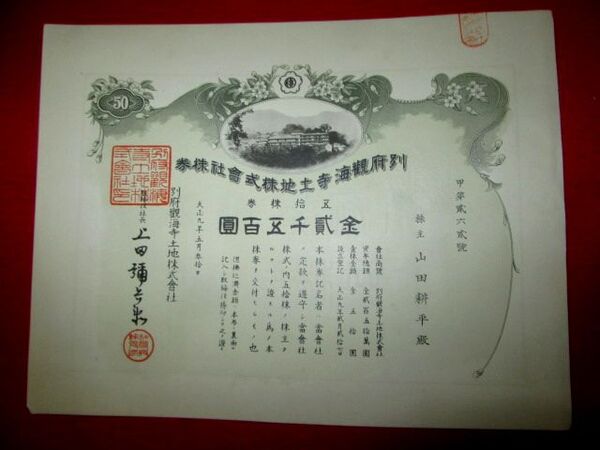 50
別府觀海寺土地株式會社株券
五拾株券
金貳千五百圓
甲第貳六貳號
株主 山田耕平殿
會社商號 別府觀海寺土地株式會社
資本總額 金貳百五拾萬圓
壹株金額 金五拾圓
設立登記 大正九年貳月貳拾
本株券記名者ハ當會社
ノ定款ヲ遵守シ當會社
株式ノ內五拾株ノ株主タ
ルコトヲ證スル爲メ本
株券ヲ交付スルモノ也
大正九年五月參拾日
別府觀海寺土地株式會社
取締役社長
別府觀海寺土地株式會社印